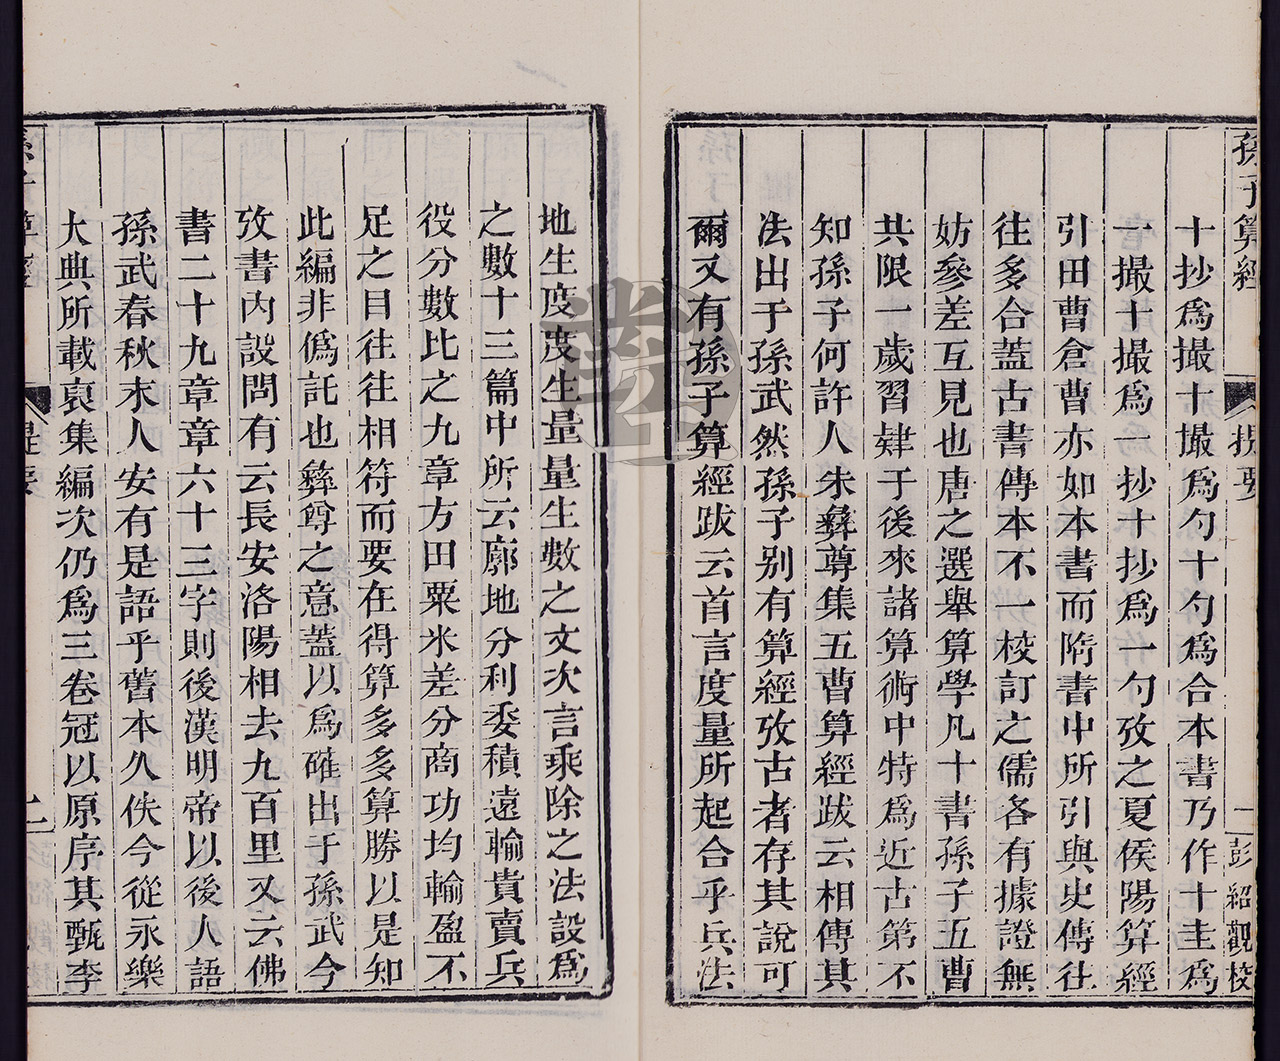 孫子算經 提要 一 彭紹觀校
十抄爲撮十撮爲勺十勺爲合本書乃作十圭爲
一撮十撮爲一抄十抄爲一勺攷之夏侯陽算經
引田曹倉曹亦如本書而隋書中所引與史傳往
往多合蓋古書傳本不一校訂之儒各有據證無
妨參差互見也唐之選舉算學凡十書孫子五曹
共限一歲習肄于後來諸算術中特爲近古第不
知孫子何許人朱彝尊集五曹算經跋云相傳其
法出于孫武然孫子别有算經攷古者存其說可
爾又有孫子算經跋云首言度量所起合乎兵法
地生度度生量量生數之文次言乘除之法設爲
之數十三篇中所云廓地分利委積遠輸貴賣兵
役分數比之九章方田粟米差分商功均輸盈不
足之目往往相符而要在得算多多算勝以是知
此編非僞託也彝尊之意蓋以爲確出于孫武今
攷書內設問有云長安洛陽相去九百里又云佛
書二十九章章六十三字則後漢明帝以後人語
孫武春秋末人安有是語乎舊本久佚今從永樂
大典所載裒集編次仍爲三卷冠以原序其甄李